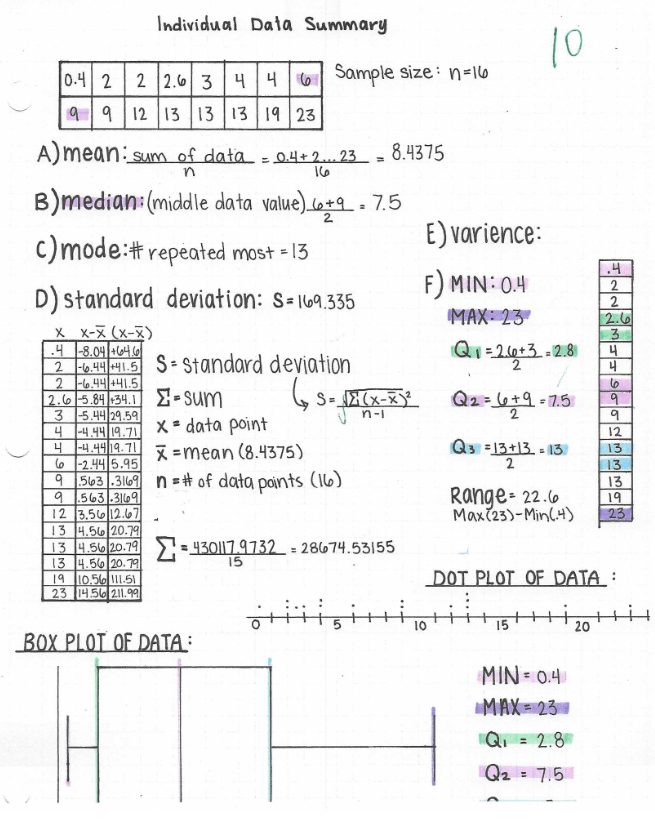 Individual Data Summary
10
0.4 2 2 2.6 3 4 4 6
9 9 12 13 13 13 19 23
Sample size: n=16
A) mean: sum of data / n = 0.4+2...23 / 16 = 8.4375
B) median: (middle data value) 6+9 / 2 = 7.5
C) mode: # repeated most = 13
D) standard deviation: S=169.335
x x-x̄ (x-x̄)
.4 -8.04 +64.6
2 -6.44 +41.5
2 -6.44 +41.5
2.6 -5.84 +34.1
3 -5.44 29.59
4 -4.44 19.71
4 -4.44 19.71
6 -2.44 5.95
9 .563 .3169
9 .563 .3169
12 3.56 12.67
13 4.56 20.79
13 4.56 20.79
13 4.56 20.79
19 10.56 111.51
23 14.56 211.99
S = standard deviation
Σ = sum
x = data point
x̄ = mean (8.4375)
n = # of data points (16)
S = √Σ(x-x̄)² / n-1
Σ = 430117.9732 / 15 = 28674.53155
E) varience:
F) MIN: 0.4
MAX: 23
Q1 = 2.6+3 / 2 = 2.8
Q2 = 6+9 / 2 = 7.5
Q3 = 13+13 / 2 = 13
Range = 22.6
Max(23)-Min(.4)
.4
2
2
2.6
3
4
4
6
9
9
12
13
13
13
19
23
DOT PLOT OF DATA:
0 5 10 15 20
BOX PLOT OF DATA:
MIN = 0.4
MAX = 23
Q1 = 2.8
Q2 = 7.5